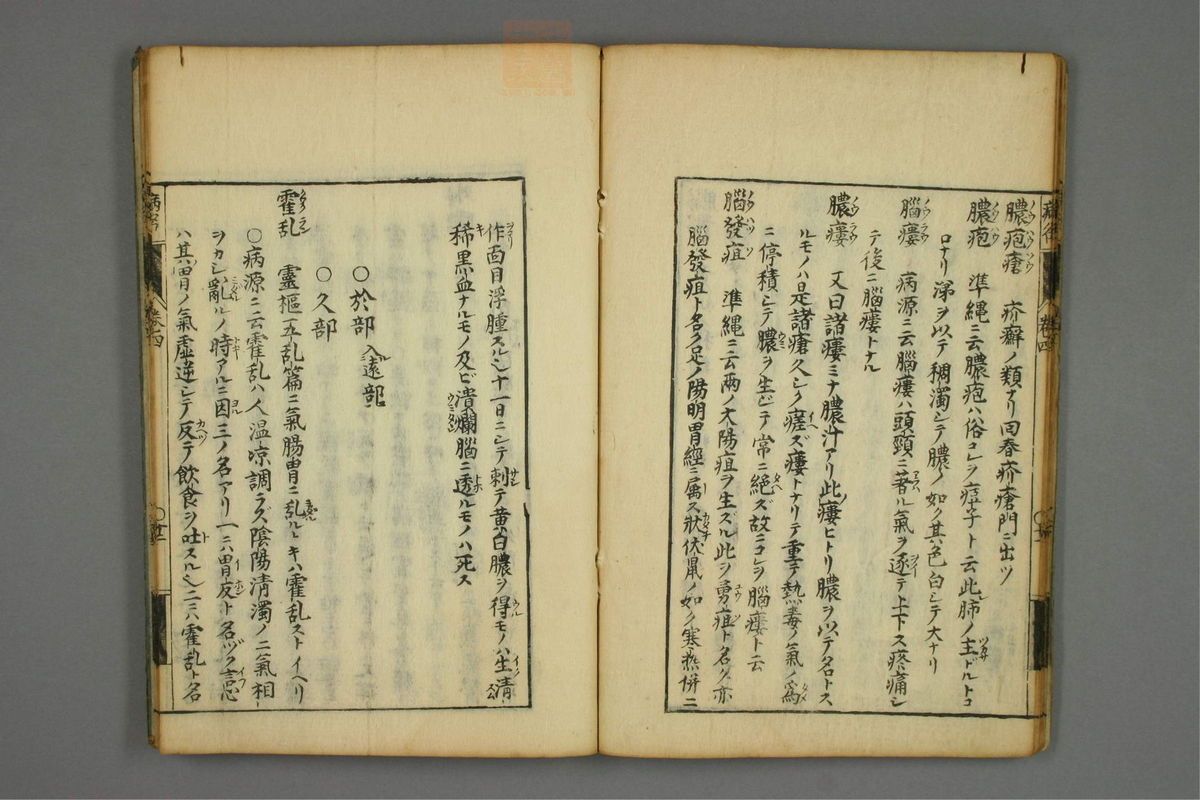 膿疱瘡 疥癬ノ類ナリ回春疥瘡門ニ出ツ
膿疱 準縄ニ云膿疱ハ俗コレヲ痘子ト云此肺ノ主ドルトコ
ロナリ涕ヲ以テ稠濁シテ膿ノ如ク其色白シテ大ナリ
腦瘻 病源ニ云腦瘻ハ頭頸ニ著ル氣ヲ逐テ上下ス疼痛シ
テ後ニ腦瘻トナル
膿瘻 又曰諸瘻ミナ膿汁アリ此瘻ヒトリ膿ヲ以テ名トス
ルモノハ是諸瘡久シク瘥ズ瘻トナリテ重テ熱毒ノ氣ノ爲
ニ停積シテ膿ヲ生ジテ常ニ絶ズ故ニコレヲ腦瘻ト云
腦發疽 準縄ニ云兩ノ大陽疽ヲ生ズル此ヲ勇疽ト名ク亦
腦發疽ト名ク足ノ陽明胃經ニ属ス狀伏鼠ノ如ク寒熱併ニ
作面目浮腫スル十一日ニシテ刺テ黄白膿ヲ得モノハ生清
稀黒血ナルモノ及ビ潰爛腦ニ透ルモノハ死ス
〇於部 入遠部
〇久部
霍乱 靈樞五乱篇ニ氣腸胃ニ乱ルヽトキハ霍乱ストイヘリ
〇病源ニ云霍乱ハ人温凉調ラズ陰陽清濁ノ二氣相
ヲカシ亂ルノ時アルニ因三ノ名アリ一ニハ胃反ト名ヅク言心
ハ其胃ノ氣虚逆シテ反テ飲食ヲ吐スル也二ニハ霍乱ト名
卷四
卷四